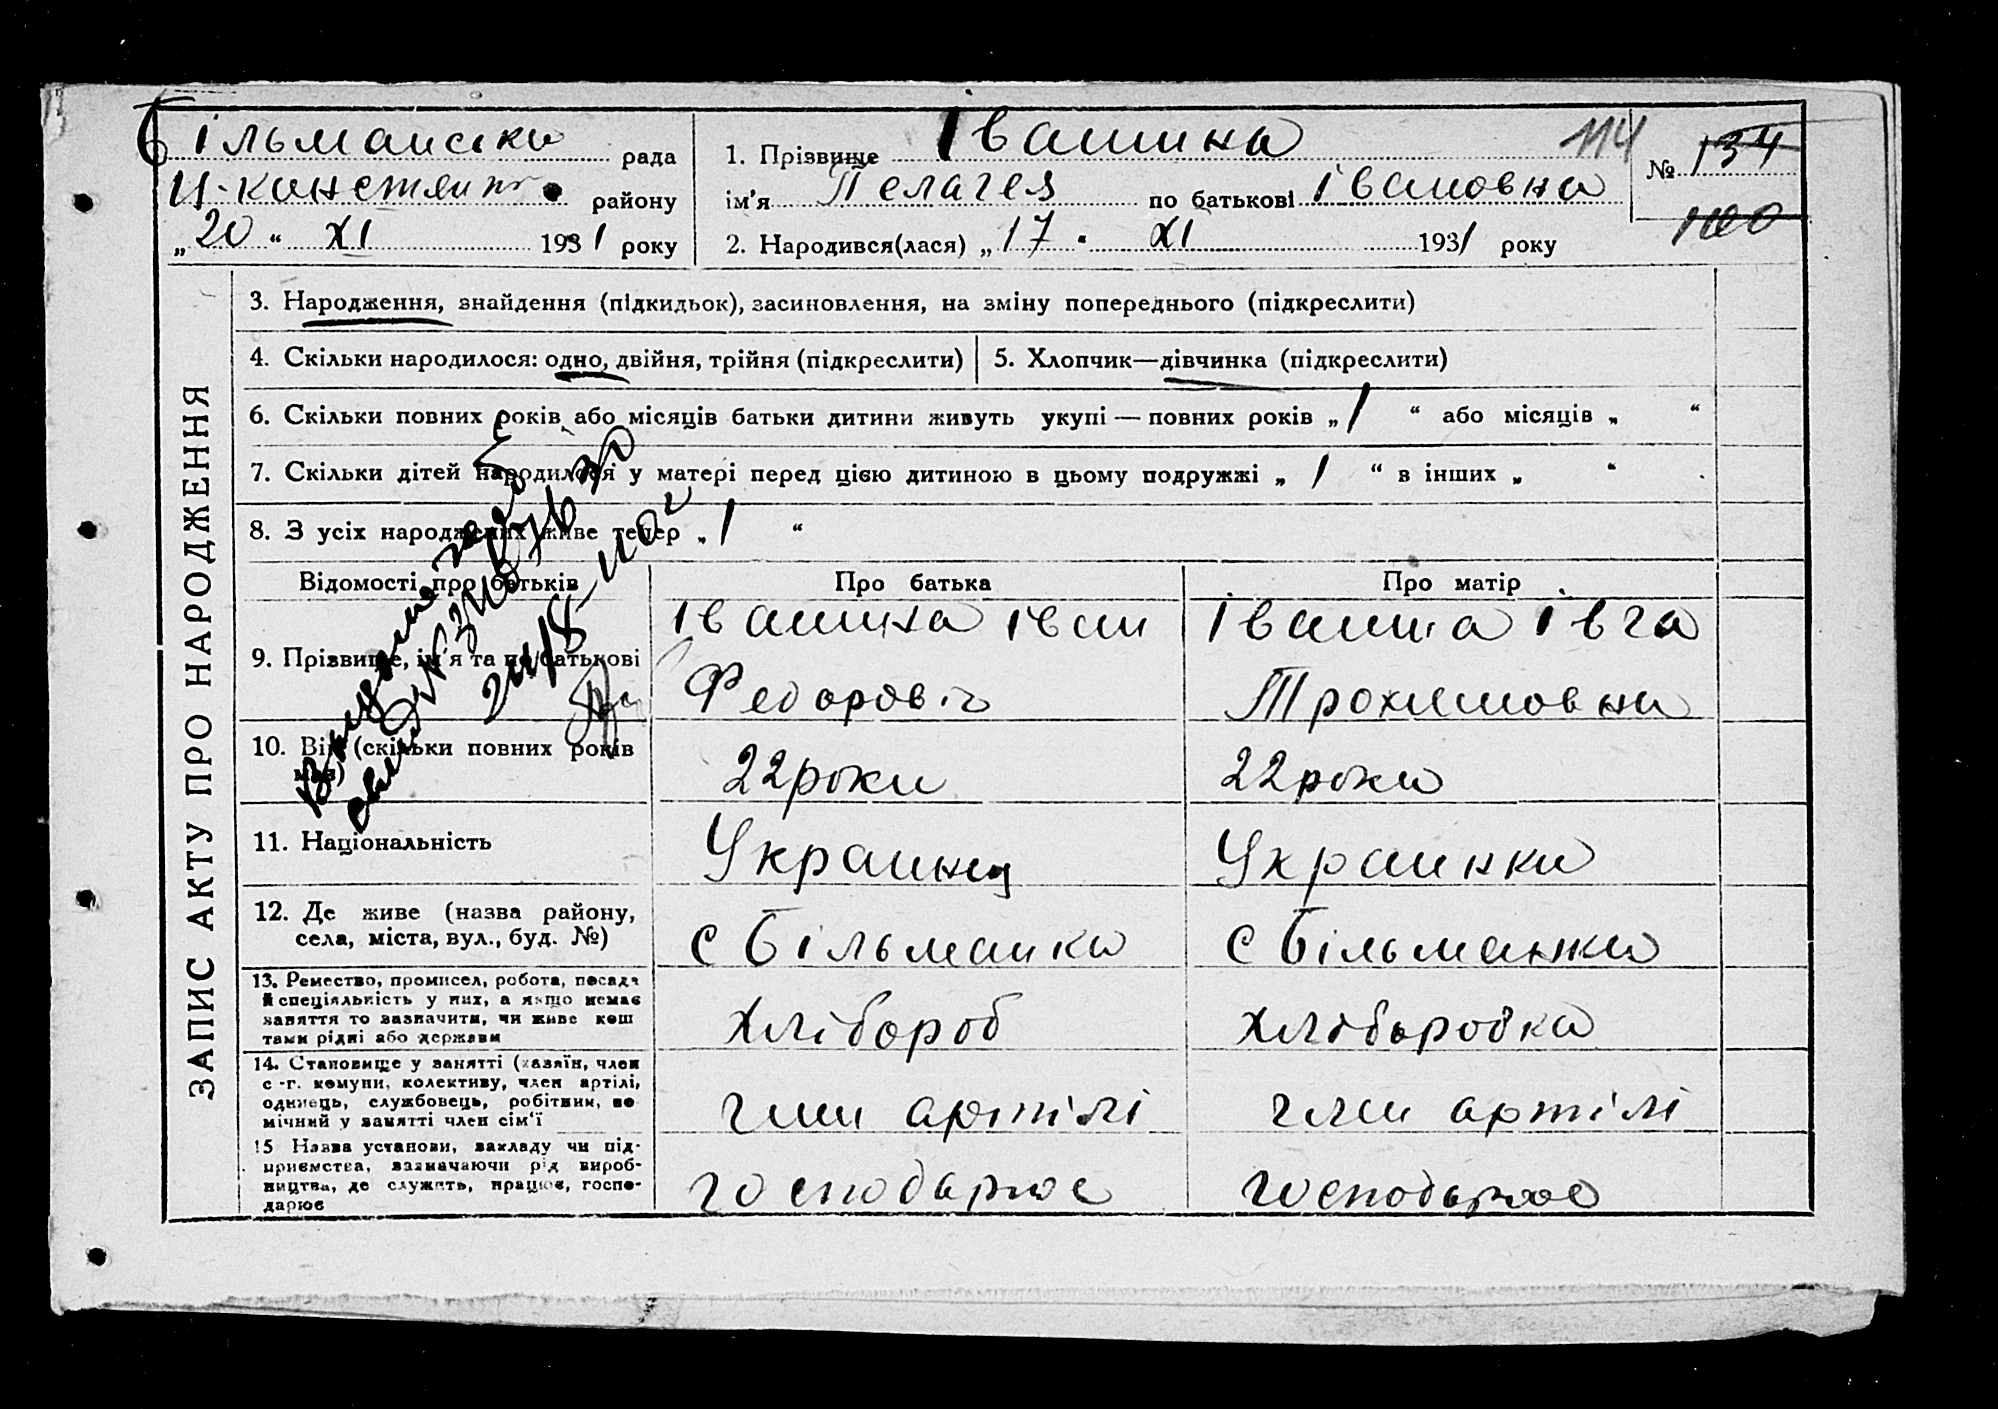 Більманска рада
Ц-констянт. району
„20“ XI 1931 року
1. Прізвище Івашина 114
ім'я Пелагея по батькові Івановна
2. Народився(лася) „17“ XI 1931 року
№ 134
100
ЗАПИС АКТУ ПРО НАРОДЖЕННЯ
3. Народження, знайдення (підкидьок), засиновлення, на зміну попереднього (підкреслити)
4. Скільки народилося: одно, двійня, трійня (підкреслити)
5. Хлопчик—дівчинка (підкреслити)
6. Скільки повних років або місяців батьки дитини живуть укупі — повних років „1“ або місяців „ “
7. Скільки дітей народилося у матері перед цією дитиною в цьому подружжі „1“ в інших „ “
8. З усіх народжених живе тепер „1“
Відомості про батьків Про батька Про матір
9. Прізвище, ім'я та по батькові
Івашина Іван
Федоровіч
Івашина Івга
Трохимовна
10. Вік (скільки повних років
має)
22 роки
22 роки
11. Національність
Украинец
Украинка
12. Де живе (назва району,
села, міста, вул., буд. №)
с Більманка
с Більманка
13. Ремество, промисел, робота, посада
й спеціяльність у них, а якщо немає
заняття то зазначити, чи живе кош
тами рідні або держави
Хлібороб
Хліборобка
14. Становище у занятті (хазяїн, член
с.-г. комуни, колективу, член артілі,
одинець, службовець, робітник, по
мічний у занятті член сім'ї
член артілі
член артілі
15 Назва установи, закладу чи під-
приємства, зазначаючи рід вироб-
ництва, де служить, працює, госпо-
дарює
господарює
господарює